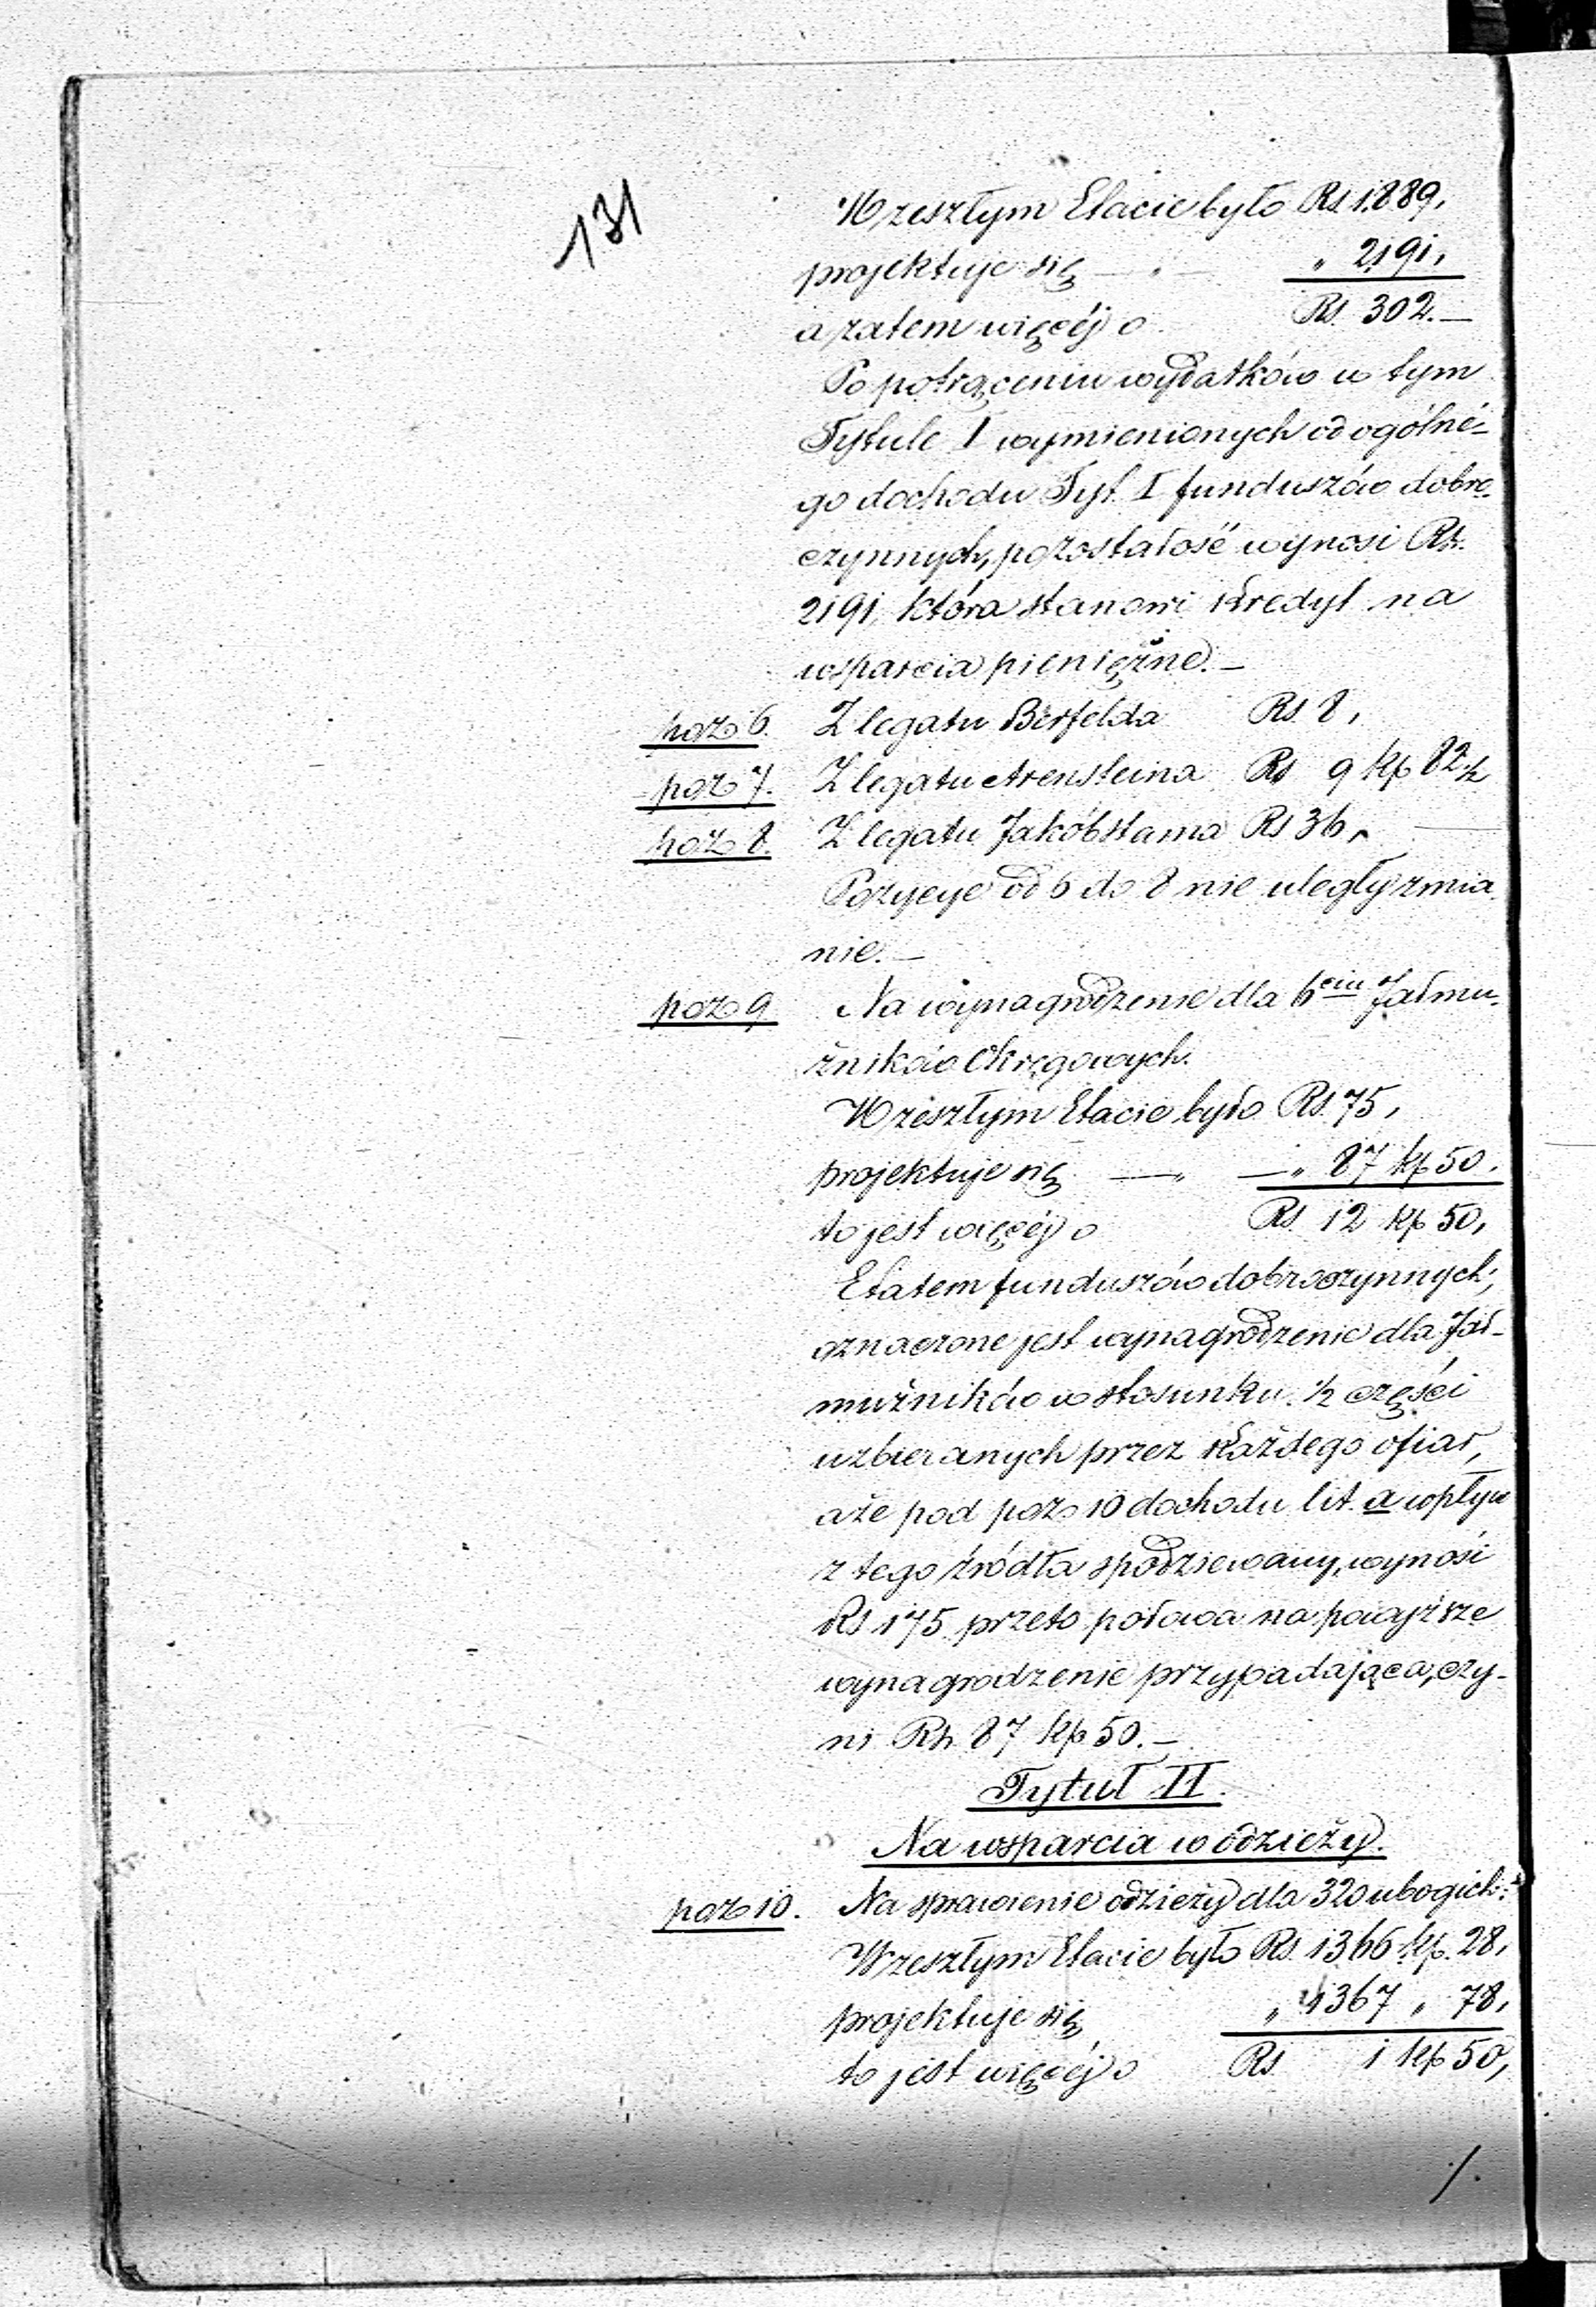 131
W zeszłym Etacie było Rs. 1889,
projektuje się — „ — „ 2191,
a zatem więcéj o Rs. 302. —
Po potrąceniu wydatków w tym
Tytule I wymienionych od ogólné-
go dochodu Tyt. I funduszów dobro-
czynnych, pozostałość wynosi Rs.
2191, która stanowi kredyt na
wsparcia pieniężne. —
poz 6. Z legatu Berfelda Rs. 8,
poz 7. Z legatu Arensteina Rs 9 kp 82½
poz 8. Z legatu Jakóbstama Rs 36,
Pozycye od 6 do 8 nie uległy zmia
nie. —
poz 9 Na wynagrodzenie dla 6ciu Jałmu-
żników Okręgowych.
W zeszłym Etacie było Rs. 75,
projektuje się — „ — „ 87 kp 50.
to jest więcéj o Rs. 12 kp 50,
Etatem funduszów dobroczynnych,
oznaczone jest wynagrodzenie dla Jał-
mużników w stosunku ½ części
uzbieranych przez każdego ofiar,
a że pod poz 10 dochodu lit. a wpływ
z tego źródła spodziewany, wynosi
Rs 175 przeto połowa na powyższe
wynagrodzenie przypadająca, czy-
ni Rs. 87 kp 50. —
Tytuł II.
Na wsparcia w odzieży.
poz 10. Na sprawienie odzieży dla 320 ubogich:
W zeszłym Etacie było Rs. 1366 kp. 28,
projektuje się „ 1367 „ 78,
to jest więcéj o Rs 1 kp 50,
/.